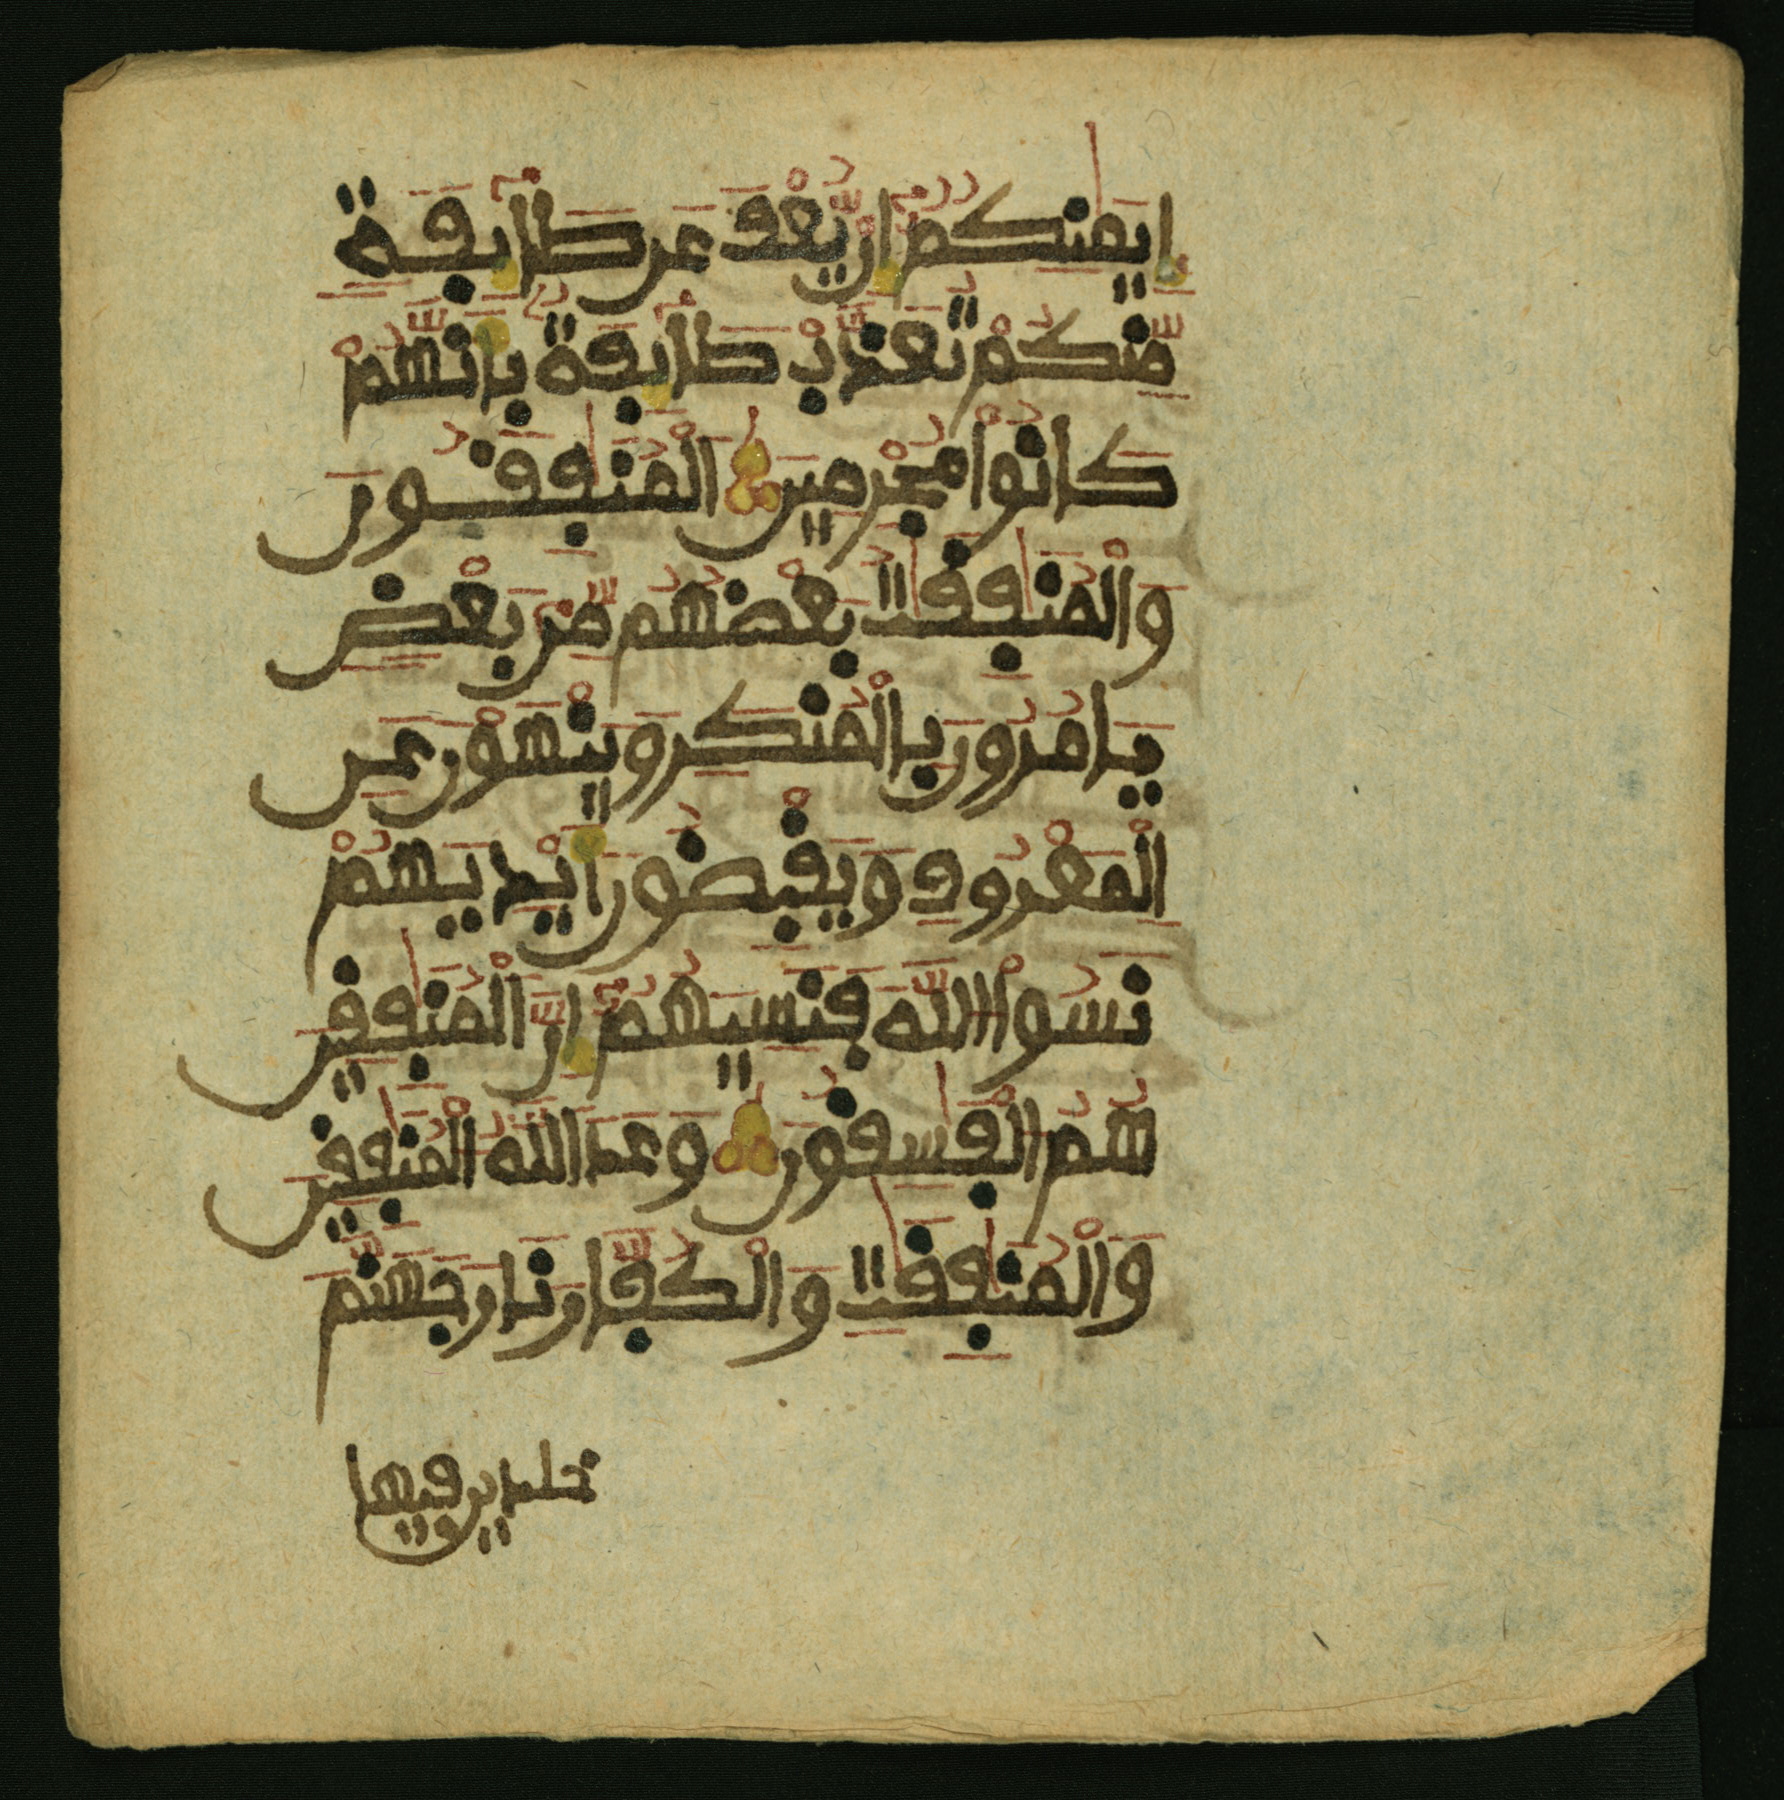 إِيمَٰنِكُمُۥٓ إِن يُّعْفَ عَن طَآئِفَةٖ
مِّنكُمْ تُعَذَّبْ طَآئِفَةُۢ بِأَنَّهُمْ
كَانُواْ مُجْرِمِينَ اَلْمُنَٰفِقُونَ
وَالْمُنَٰفِقَٰتُ بَعْضُهُم مِّنۢ بَعْضٖ
يَامُرُونَ بِالْمُنكَرِ وَيَنْهَوْنَ عَنِ
اِلْمَعْرُوفِ وَيَقْبِضُونَ أَيْدِيَهُمْ
نَسُواْ اللَّهَ فَنَسِيَهُمُۥٓ إِنَّ اَلْمُنَٰفِقِينَ
هُمُ الْفَٰسِقُونَ وَعَدَ اللَّهُ الْمُنَٰفِقِينَ
وَالْمُنَٰفِقَٰتِ وَالْكُفَّارَ نَارَ جَهَنَّمَ
خلدين فيها